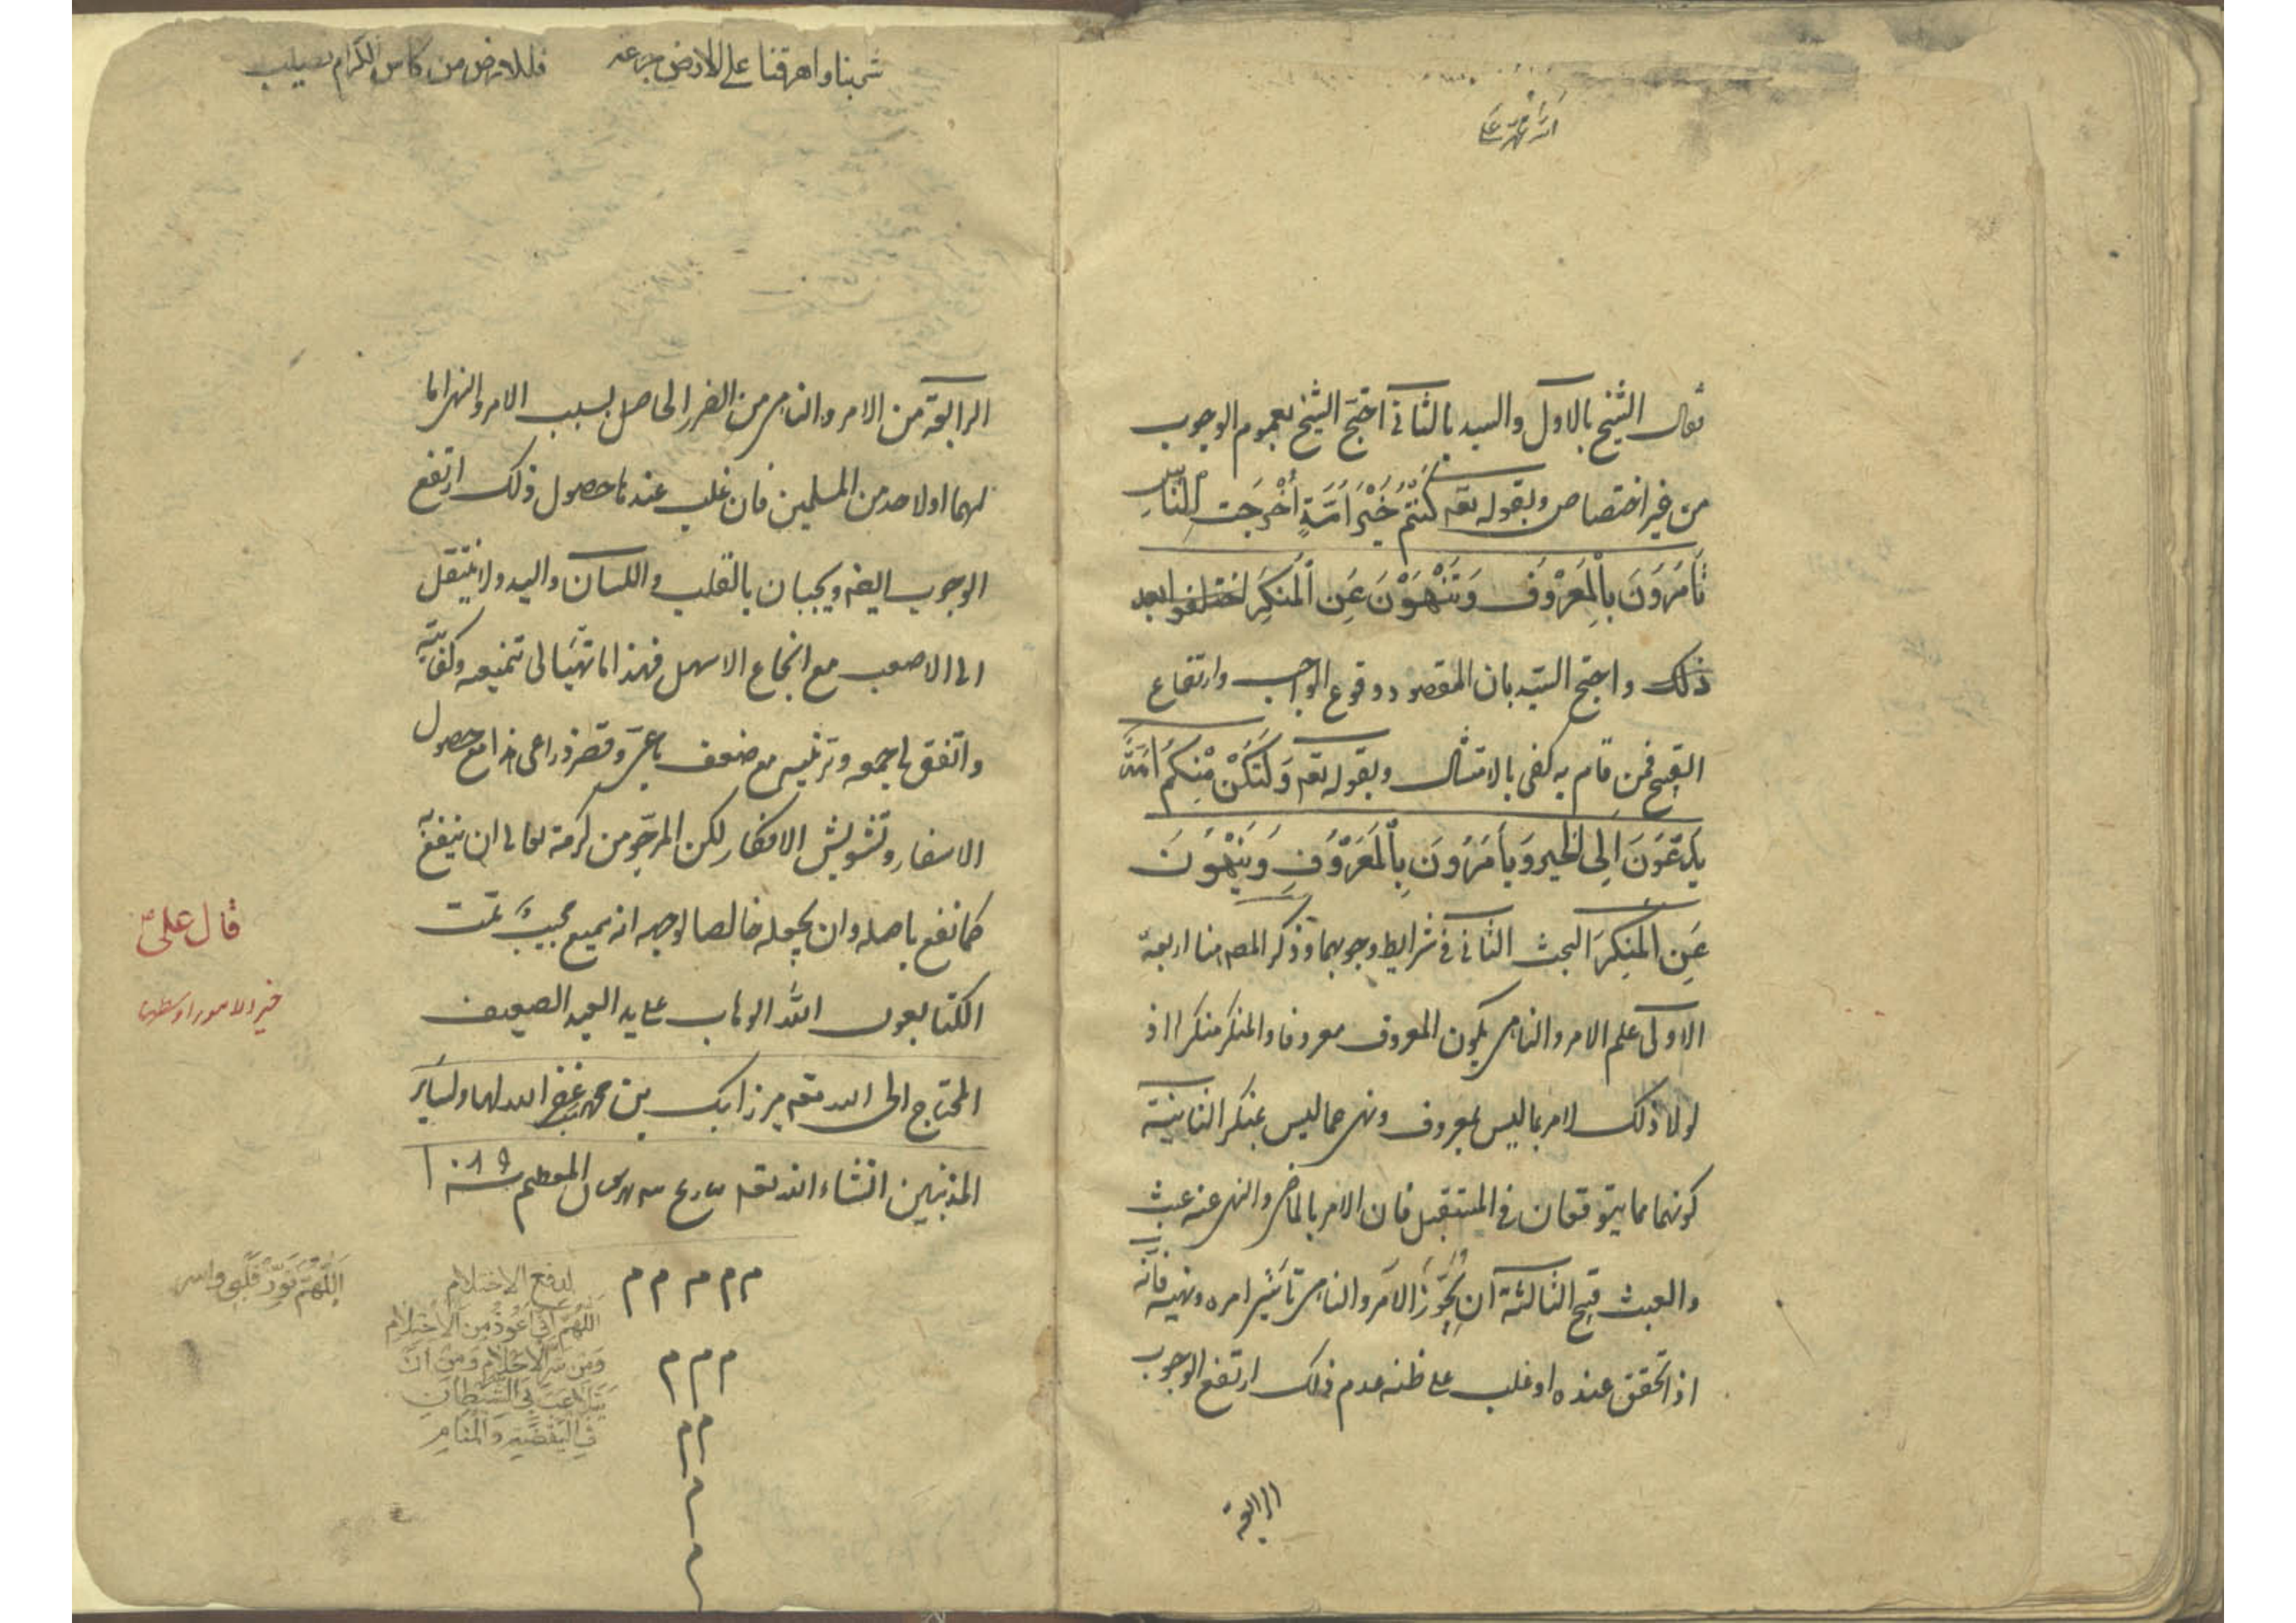 فقال الشيخ بالاول والسيد بالثاني احتج الشيخ بعموم الوجوب
من غير اختصاص وبقوله تعه كُنْتُمْ خَيْرَ اُمَّةٍ اُخْرِجَت لِلنَّاسِ
تَأمُرُونَ بِالْمَعْرُوفِ وَتَنْهَوْنَ عَنِ الْمُنكَرِ اختلفوا بعد
ذلك واحتج السيّد بان المقصود وقوع الواجب وارتفاع
القبيح فمن قام به كفى بالامتثال وبقوله تعه وَلْتَكُنْ مِنْكُمْ اُمَّةٌ
يَدْعُونَ اِلَى الخَيرِ وَيَأمُرُونَ بِالْمَعْرُوفِ وَيَنْهَوْنَ
عَنِ الْمُنكَرِ البحث الثاني في شرايط وجوبهما وذكر المصه هنا اربعة
الاولى علم الامر والناهي بكون المعروف معروفا والمنكر منكرا اذ
لولا ذلك لامر بما ليس بمعروف ونهى عما ليس بمنكر الثانية
كونهما مما يتوقعان في المستقبل فان الامر بالماضي والنهى عنه عبث
والعبث قبيح الثالثة ان يُجَوِّزَ الامر والناهي تأثير امره ونهيه فانه
اذا تحقق عنده او غلب على ظنه عدم ذلك ارتفع الوجوب
الرابعة
شربنا واهرقنا على الارض جرعه فللارض من كاس الكرام نصيب
الرابعة من الامر والناهي من الضرر الحاصل بسبب الامر والنهى اما
لهما او لاحد من المسلمين فان غلب عندنا حصول ذلك ارتفع
الوجوب ايضه ويجبان بالقلب واللسان واليد ولا ينتقل
الى الاصعب مع انجاع الاسهل فهذا ما تهيّا لى تنميقه وكفايته
واتفق لى جمعه وترتيبه مع ضعف باعى وقصر ذراعى هذا مع حصول
الاسفار وتشويش الافكار لكن المرجو من كرمه تعالى ان ينفع به
كما نفع باصله وان يجعله خالصا لوجهه انه سميع مجيب تمت
الكتا بعون الله الوهاب على يد العبد الضعيف
المحتاج الى الله تعه ميرزا بك بن محمد غفر الله لهما ولساير
المذنبين انشاء الله تعه المعظم سنة ١٠٨٩
م م م م م
م م م
م م
م
م
قال على
خير الامور اوسطها
اللّهُمّ نَوِّرْ قَلْبِى
لدفع الاحتلام
اللّهُمّ اِنّى اَعُوذُ مِنَ الاِحْتِلامِ
وَمِن سُوء الاَحْلامِ وَمِن اَنْ
يَتَلاعَبَ بِىَ الشَّيطانُ
فِى اليَقَضَةِ وَالمَنامِ